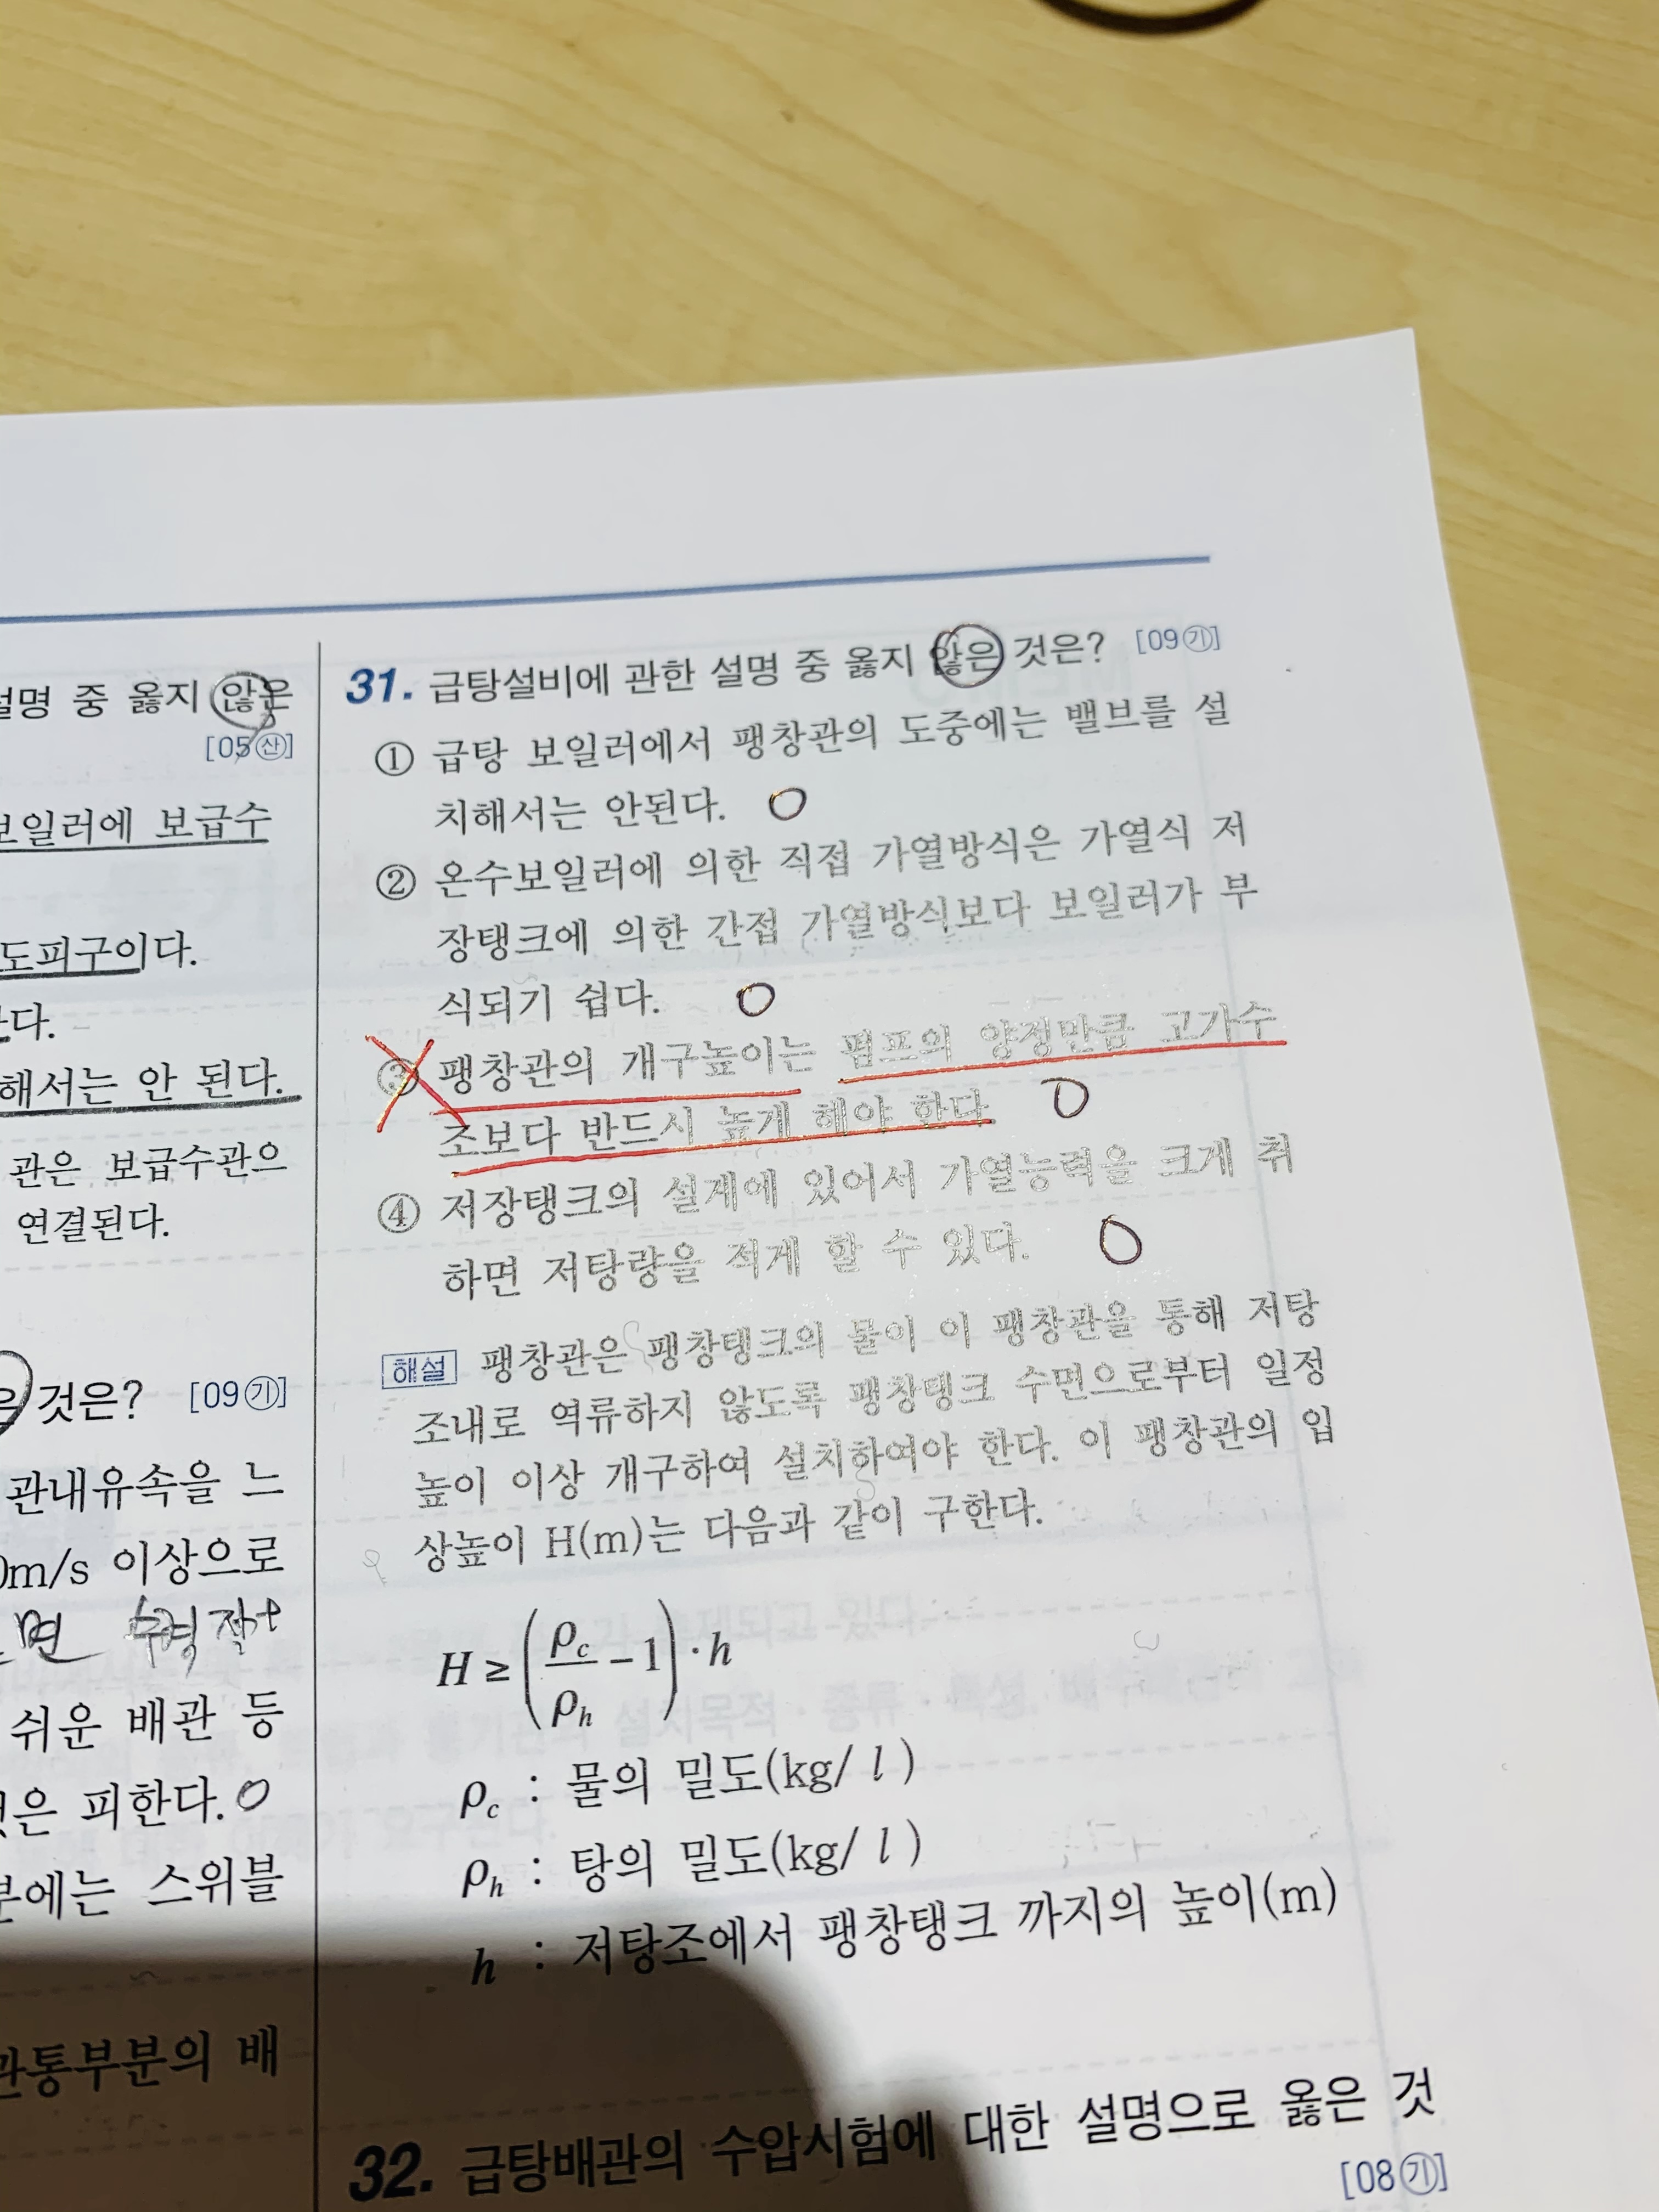 설명 중 옳지 않은
[05㉦]
보일러에 보급수
도피구이다.
다.
해서는 안 된다.
관은 보급수관으
연결된다.
것은? [09㉮]
관내유속을 느
m/s 이상으로
면
쉬운 배관 등
것은 피한다. O
에는 스위블
관통부분의 배
31. 급탕설비에 관한 설명 중 옳지 않은 것은? [09㉮]
① 급탕 보일러에서 팽창관의 도중에는 밸브를 설
치해서는 안된다. O
② 온수보일러에 의한 직접 가열방식은 가열식 저
장탱크에 의한 간접 가열방식보다 보일러가 부
식되기 쉽다. O
③ 팽창관의 개구높이는 펌프의 양정만큼 고가수
조보다 반드시 높게 해야 한다. O
④ 저장탱크의 설계에 있어서 가열능력을 크게 취
하면 저탕량을 적게 할 수 있다. O
해설 팽창관은 팽창탱크의 물이 이 팽창관을 통해 저탕
조내로 역류하지 않도록 팽창탱크 수면으로부터 일정
높이 이상 개구하여 설치하여야 한다. 이 팽창관의 입
상높이 H(m)는 다음과 같이 구한다.
H ≥ (ρc/ρh − 1) · h
ρc : 물의 밀도(kg/ l )
ρh : 탕의 밀도(kg/ l )
h : 저탕조에서 팽창탱크 까지의 높이(m)
32. 급탕배관의 수압시험에 대한 설명으로 옳은 것
[08㉮]